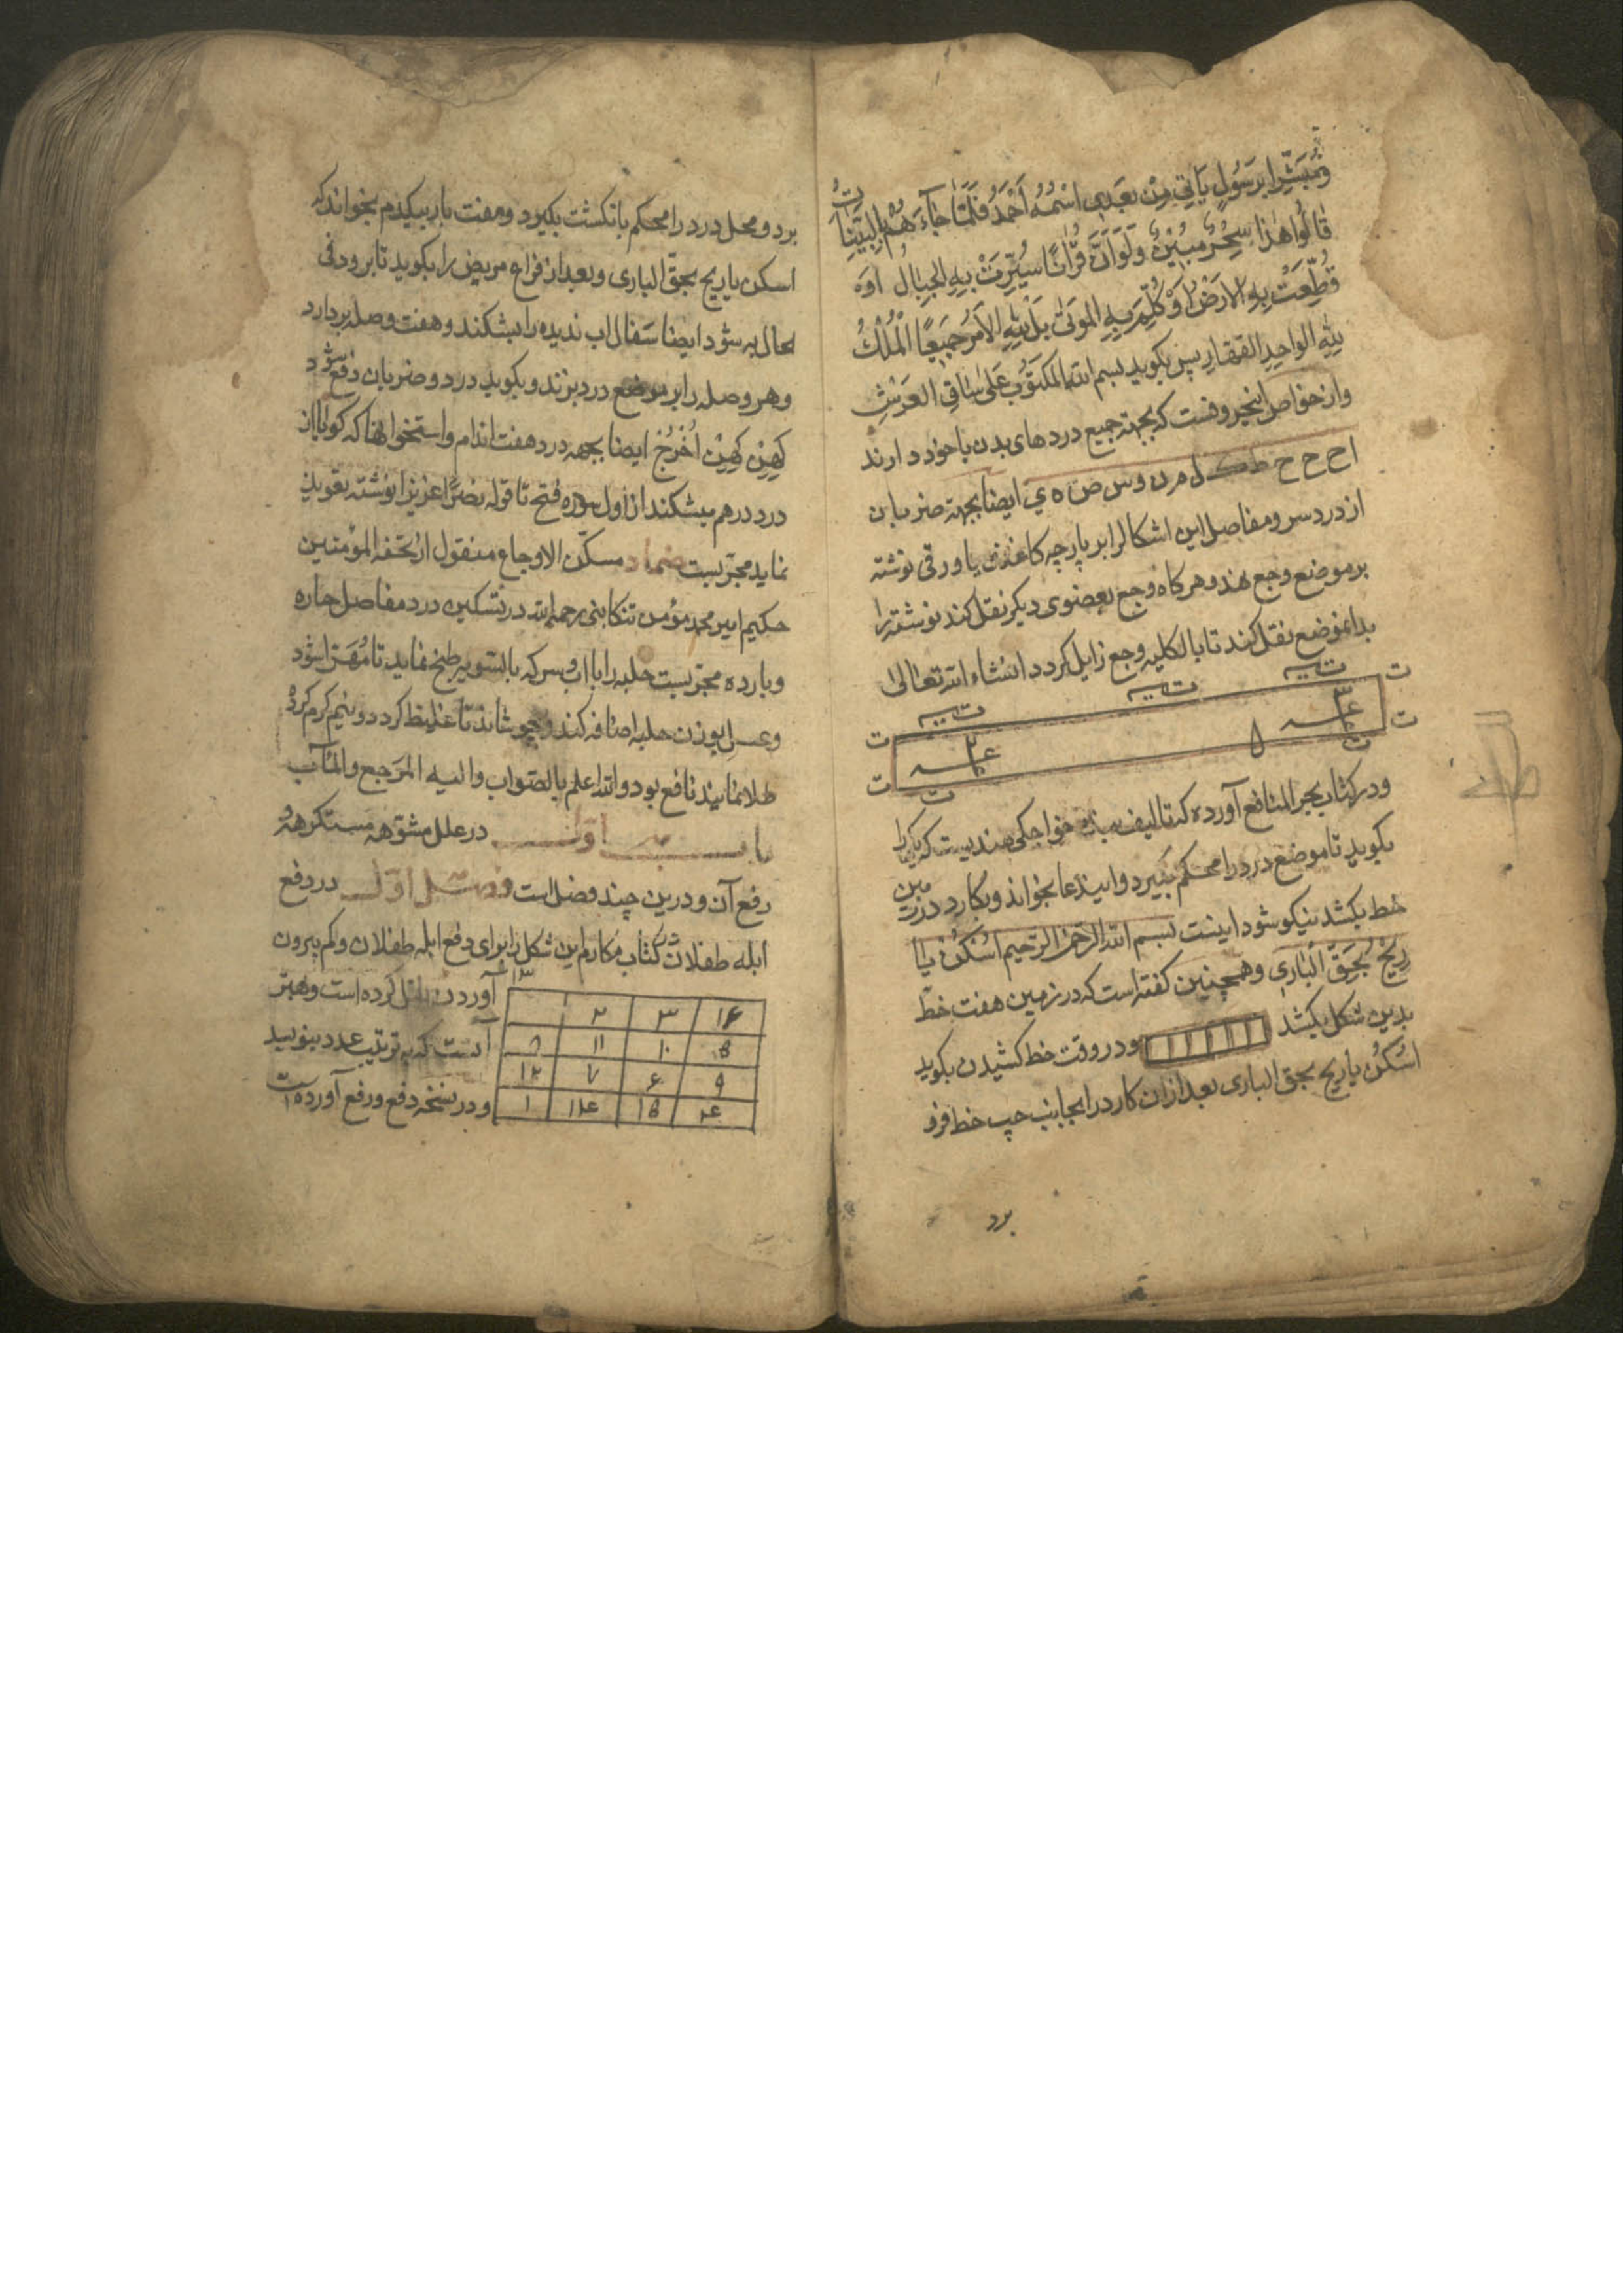 وَمُبَشِّرًا بِرَسُولٍ يَأتِي مِنْ بَعدِي اسْمُهُ اَحْمَدُ فَلَمَّا جَاءَهُمْ بِالْبَيِّنَاتِ
قَالُوا هٰذَا سِحْرٌ مُبِيْنٌ وَلَوْاَنَّ قُرْاٰنًا سُيِّرَتْ بِهِ الْجِبَالُ اَوْ
قُطِّعَتْ بِهِ الاَرْضُ اَوْ كُلِّمَ بِهِ المَوتٰى بَلْ لِلّٰهِ الاَمْرُ جَمِيعًا المُلْكُ
لِلّٰهِ الواحِدِ القهار پس بكويد بسم الله المكتوب عَلىٰ سَاقِ العَرْشِ
وازخواص اينحروفست كه بجهة جميع دردهاى بدن باخود دارند
اح ح ح ط ك ل م ن وس ص ه ي ايضا بجهة ضربان
از درد سر ومفاصل اين اشكالرا بر پارچه كاغذى يا ورقى نوشته
بر موضع وجع نهد وهركاه وجع بعضوى ديكر نقل كند نوشته را
بدانموضع نقل كند تا بالكليه وجع زايل كردد انشاء الله تعالىٰ
ودر كتاب بحر المنافع آورده كه تاليف خواجكى هنديست كه
بكويد تا موضع درد را محكم بكيرد واينعا بخواند وبكارد در زمين
خط بكشد نيكو شود اينست بسم الله الرحمن الرحيم اسْكُنْ يَا
رِيْحُ بِحَقِّ الْبَارِى وهمچنين كفته است كه در زمين هفت خط
بدين شكل بكشد ودر وقت خط كشيدن بكويد
اسْكُنْ يا ريح بحق البارى بعد ازان كارد را بجانب چپ خط فرو
برد
برد ومحل درد را محكم بانكشت بكيرد وهفت بار بيكدم بخواند كه
اسكن ياريح بحقّ البارى وبعد از فراغ مريض را بكويد تا برود فى
الحال به شود ايضا سفال اب نديده را بشكند وهفت وصله بردارد
وهر وصله را بر موضع درد بزند وبكويد درد وضربان دفع شود
كَهِنْ كَهِنْ اُخْرُجْ ايضا بجهه درد هفت اندام واستخوانها كه كويا از
درد درهم ميشكند از اول سوره فتح تا قوله نصرًا عزيزا نوشته تعويذ
نمايد مجربست ضماد مسكّن الاوجاع منقول از تحفه المؤمنين
حكيم امير محمد مؤمن تنكابنى رحمه الله در تسكين درد مفاصل حاره
وبارده مجربست حلبه را با اب وسركه بالسّويه طبخ نمايد تا مُهَرّا شود
وعسل بوزن حلبه اضافه كند وجوشاند تا غليظ كردد ونيم كرم كرده
طلا نمايند نافع بود والله اعلم بالصّواب واليه المَرجع والمَآب
باب اوّل در علل مشوّهه مستكرهه و
رفع آن ودرين چند فصل است فصل اوّل در دفع
ابله طفلان در كتاب مكارم اين شكل را براى دفع ابله طفلان وكم بيرون
آوردن نقل كرده است وبهتر
آنست كه به ترتيب عدد بنويسد
ودر نسخه دفع ورفع آورده است
۱۳
۲ ۳ ۱۶
۸ ۱۱ ۱۰ ۵
۱۲ ۷ ۶ ۹
۱ ۱۴ ۱۵ ۴